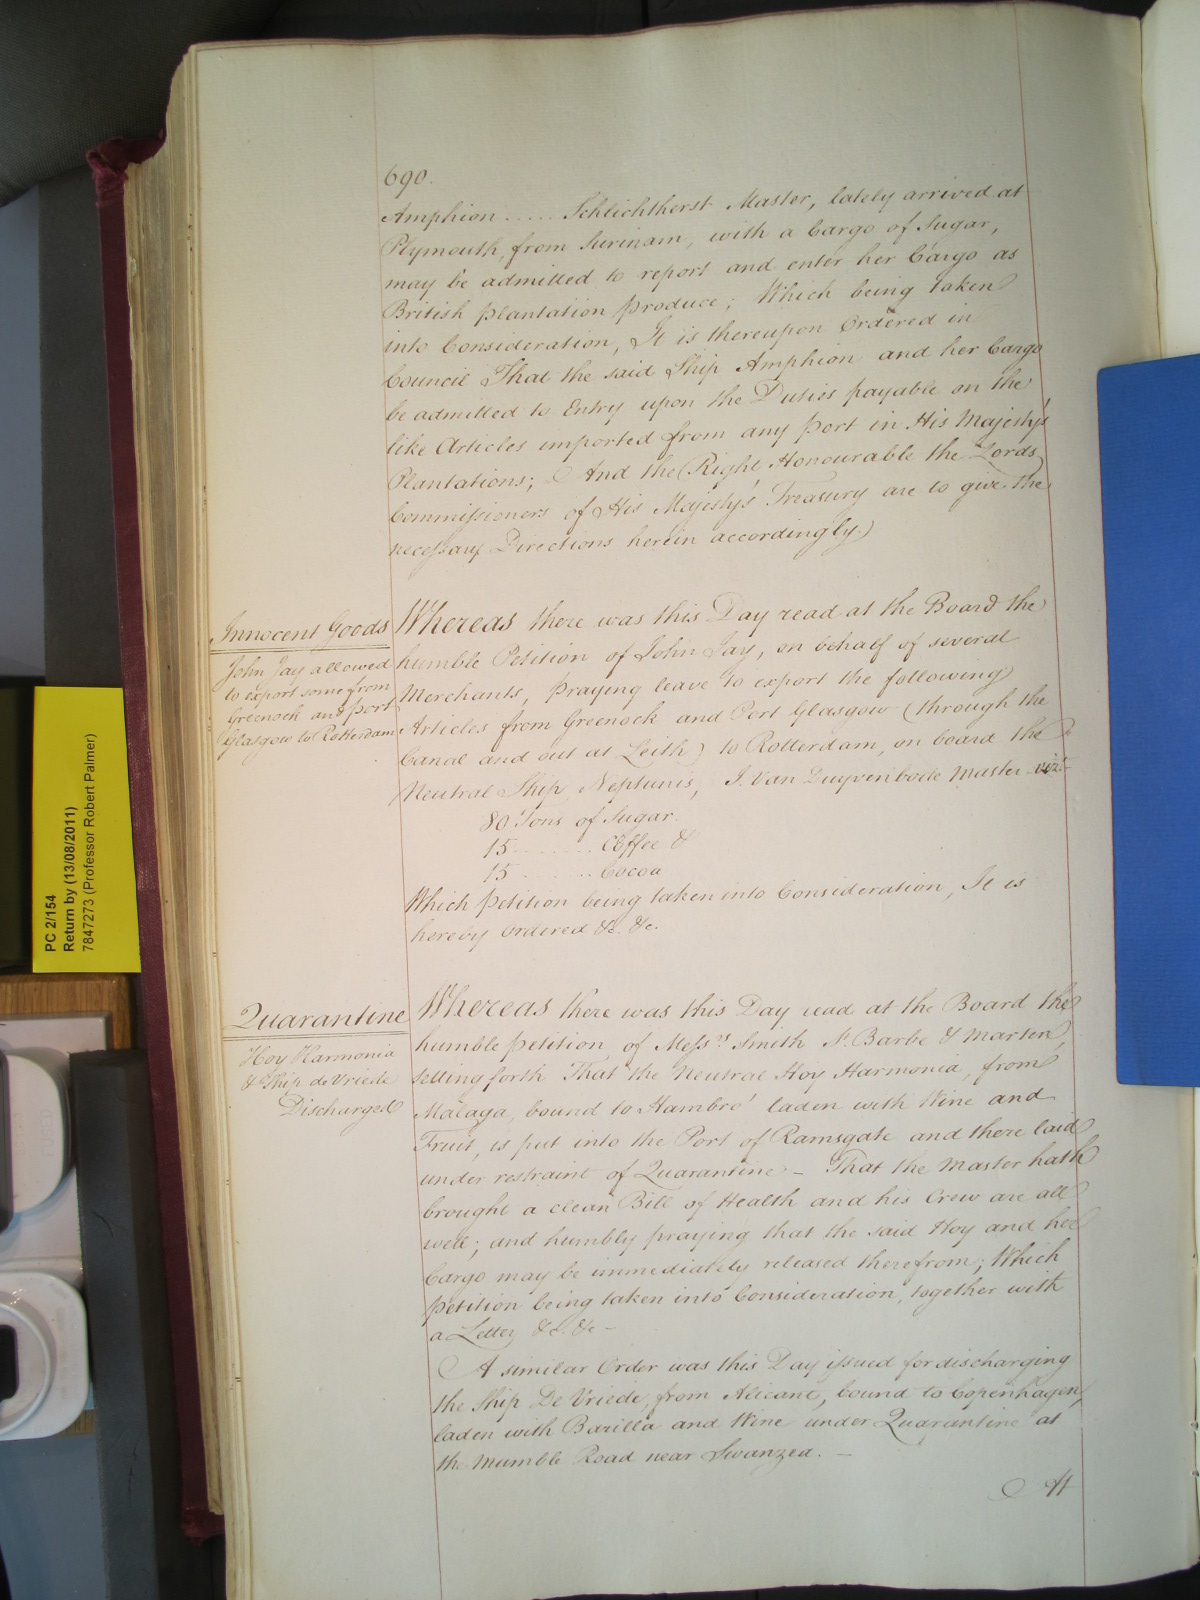 690.
Amphion ..... Schlichtherst Master, lately arrived at
Plymouth, from Surinam, with a Cargo of Sugar,
may be admitted to report and enter her Cargo as
British plantation produce; Which being taken
into Consideration, It is thereupon Ordered in
Council That the said Ship Amphion and her Cargo
be admitted to Entry upon the Duties payable on the
like Articles imported from any Port in His Majesty's
Plantations; And the Right Honourable the Lords
Commissioners of His Majesty's Treasury are to give the
necessary Directions herein accordingly.
Innocent Goods
John Jay allowed
to export some from
Greenock and Port
Glasgow to Rotterdam
Whereas there was this Day read at the Board the
humble Petition of John Jay, on behalf of several
Merchants, praying leave to export the following
Articles from Greenock and Port Glasgow (through the
Canal and out at Leith) to Rotterdam, on board the
Neutral Ship Neptunis, J. Van Duyvenbode Master vizt.
80 Tons of Sugar.
15 ........ Coffee &
15 ........ Cocoa
Which petition being taken into Consideration, It is
hereby ordered &c. &c.
Quarantine
Hoy Harmonia
& Ship de Vriede
Discharged
Whereas there was this Day read at the Board the
humble petition of Messrs. Smith St. Barbe & Marten,
setting forth That the Neutral Hoy Harmonia, from
Malaga, bound to Hambro' laden with Wine and
Fruit, is put into the Port of Ramsgate and there laid
under restraint of Quarantine - That the Master hath
brought a clean Bill of Health and his Crew are all
well; and humbly praying that the said Hoy and her
Cargo may be immediately released therefrom; Which
petition being taken into Consideration, together with
a Letter &c. &c -
A similar Order was this Day issued for discharging
the Ship De Vriede, from Alicant, bound to Copenhagen,
laden with Barilla and Wine under Quarantine at
the Mumble Road near Swanzea. -
At
PC 2/154
Return by (13/08/2011)
7847273 (Professor Robert Palmer)